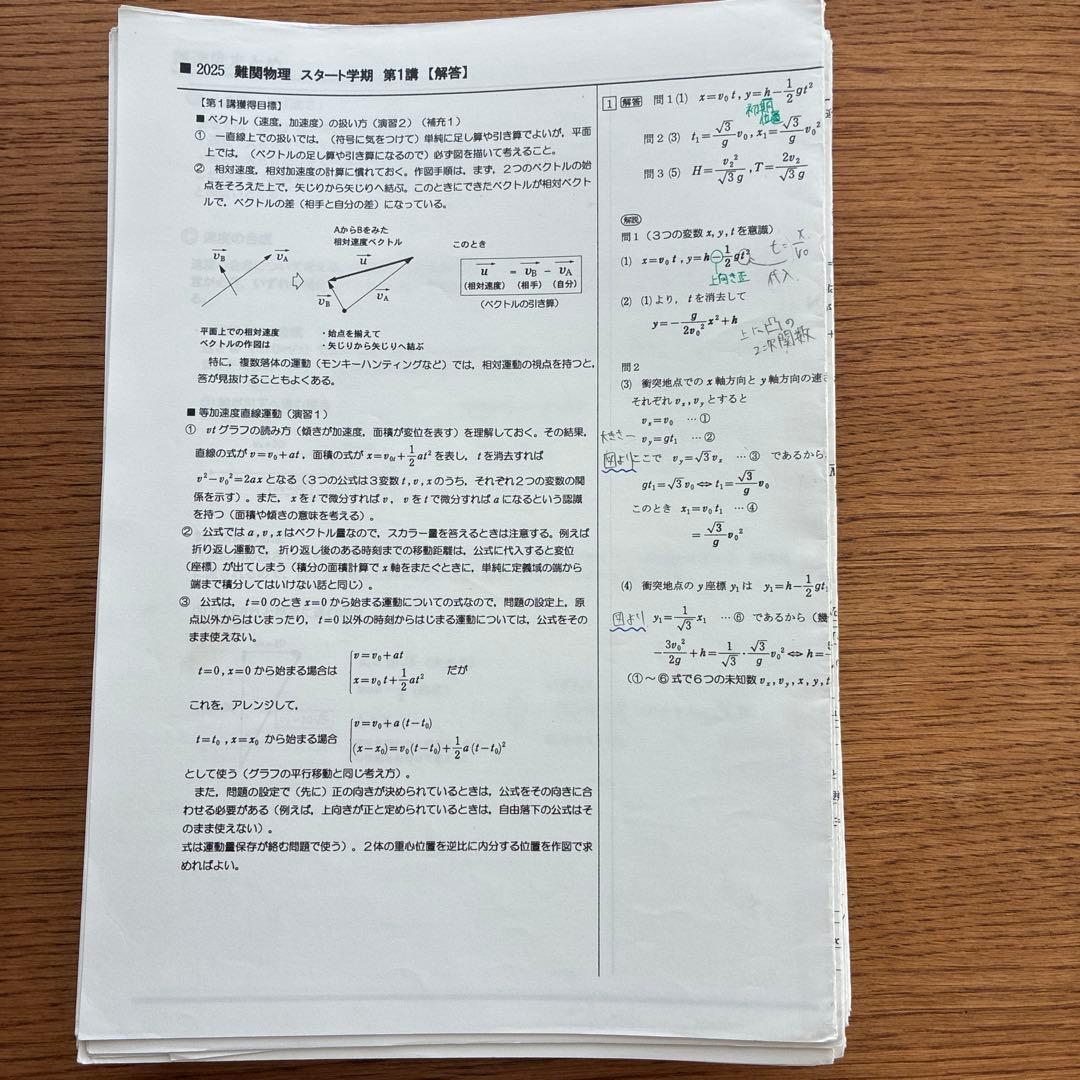 ■ 2025 難関物理 スタート学期 第1講 【解答】
【第1講獲得目標】
■ ベクトル（速度，加速度）の扱い方（演習2）（補充1）
① 一直線上での扱いでは，（符号に気をつけて）単純に足し算や引き算でよいが，平面
上では，（ベクトルの足し算や引き算になるので）必ず図を描いて考えること。
② 相対速度，相対加速度の計算に慣れておく。作図手順は，まず，2つのベクトルの始
点をそろえた上で，矢じりから矢じりへ結ぶ。このときにできたベクトルが相対ベクト
ルで，ベクトルの差（相手と自分の差）になっている。
AからBをみた
相対速度ベクトル
このとき
v_B v_A
u
v_B v_A
u = v_B − v_A
(相対速度) (相手) (自分)
（ベクトルの引き算）
平面上での相対速度
ベクトルの作図は
・始点を揃えて
・矢じりから矢じりへ結ぶ
特に，複数落体の運動（モンキーハンティングなど）では，相対運動の視点を持つと，
答が見抜けることもよくある。
■ 等加速度直線運動（演習1）
① vtグラフの読み方（傾きが加速度，面積が変位を表す）を理解しておく。その結果，
直線の式が v=v₀+at，面積の式が x=v₀t+1/2at² を表し，tを消去すれば
v²−v₀²=2ax となる（3つの公式は3変数 t, v, x のうち，それぞれ2つの変数の関
係を示す）。また，xをtで微分すればv，vをtで微分すればaになるという認識
を持つ（面積や傾きの意味を考える）。
② 公式では a, v, x はベクトル量なので，スカラー量を答えるときは注意する。例えば
折り返し運動で，折り返し後のある時刻までの移動距離は，公式に代入すると変位
（座標）が出てしまう（積分の面積計算でx軸をまたぐときに，単純に定義域の端から
端まで積分してはいけない話と同じ）。
③ 公式は，t=0のときx=0から始まる運動についての式なので，問題の設定上，原
点以外からはじまったり，t=0以外の時刻からはじまる運動については，公式をその
まま使えない。
t=0, x=0 から始まる場合は
v=v₀+at
x=v₀t+1/2at²
だが
これを，アレンジして，
t=t₀, x=x₀ から始まる場合
v=v₀+a(t−t₀)
(x−x₀)=v₀(t−t₀)+1/2a(t−t₀)²
として使う（グラフの平行移動と同じ考え方）。
また，問題の設定で（先に）正の向きが決められているときは，公式をその向きに合
わせる必要がある（例えば，上向きが正と定められているときは，自由落下の公式はそ
のまま使えない）。
式は運動量保存が絡む問題で使う）。2体の重心位置を逆比に内分する位置を作図で求
めればよい。
1 解答 問1(1) x=v₀t, y=h−1/2gt²
初期
位置
問2(3) t₁=√3/g v₀, x₁=√3/g v₀²
問3(5) H=v₂²/√3g, T=2v₂/√3g
解説
問1（3つの変数 x, y, t を意識）
(1) x=v₀t, y=h−1/2gt²
t=x/v₀
上向き正
代入
(2) (1)より，tを消去して
y=−g/2v₀² x²+h
上に凸の
2次関数
問2
(3) 衝突地点でのx軸方向とy軸方向の速さ
それぞれ v_x, v_y とすると
v_x=v₀ …①
大きさ
v_y=gt₁ …②
図より
ここで v_y=√3v_x …③ であるから
gt₁=√3v₀⇔t₁=√3/g v₀
このとき x₁=v₀t₁ …④
=√3/g v₀²
(4) 衝突地点のy座標 y₁ は y₁=h−1/2gt₁
図より
y₁=1/√3 x₁ …⑥ であるから（幾
−3v₀²/2g+h=1/√3・√3/g v₀²⇔h=
（①～⑥式で6つの未知数 v_x, v_y, x, y, t